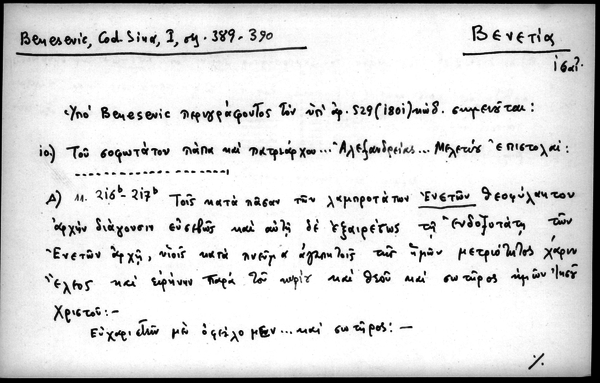 Benesevic, Cod. Sina, I, σσ. 389-390
Βενετίας
Ὑπὸ Benesevic περιγράφοντος τὸν ὑπ' ἀρ. 529 (1801) κώδ. σημειοῦται:
10) Τοῦ σοφωτάτου πάπα καὶ πατριάρχου... Ἀλεξανδρείας... Μελετίου Ἐπιστολαί:
Α) 11. 216ᵇ-217ᵇ Τοῖς κατὰ πᾶσαν τῶν λαμπροτάτων Ἐνετῶν θεοφύλακτον
ἀρχὴν διάγουσιν εὐσεβῶς καὶ αὐτῇ δὲ ἐξαιρέτως τῇ Ἐνδοξοτάτῃ τῶν
Ἐνετῶν ἀρχῇ, υἱοῖς κατὰ πνεῦμα ἀγαπητοῖς τῆς ἡμῶν μετριότητος χάριν
Ἔλεος καὶ εἰρήνην παρὰ τοῦ κυρίου καὶ θεοῦ καὶ σωτῆρος ἡμῶν Ἰησοῦ
Χριστοῦ:-
Εὐχαριστεῖν μὲν ὀφείλομεν... καὶ σωτῆρος:-
%